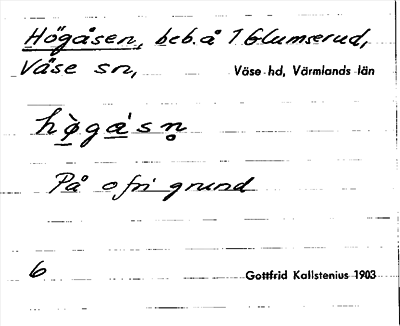 Högåsen, beb. å 1 Glumserud,
Väse sn, Väse hd, Värmlands län
hø̀gåsn̥
På ofri grund
6 Gottfrid Kallstenius 1903